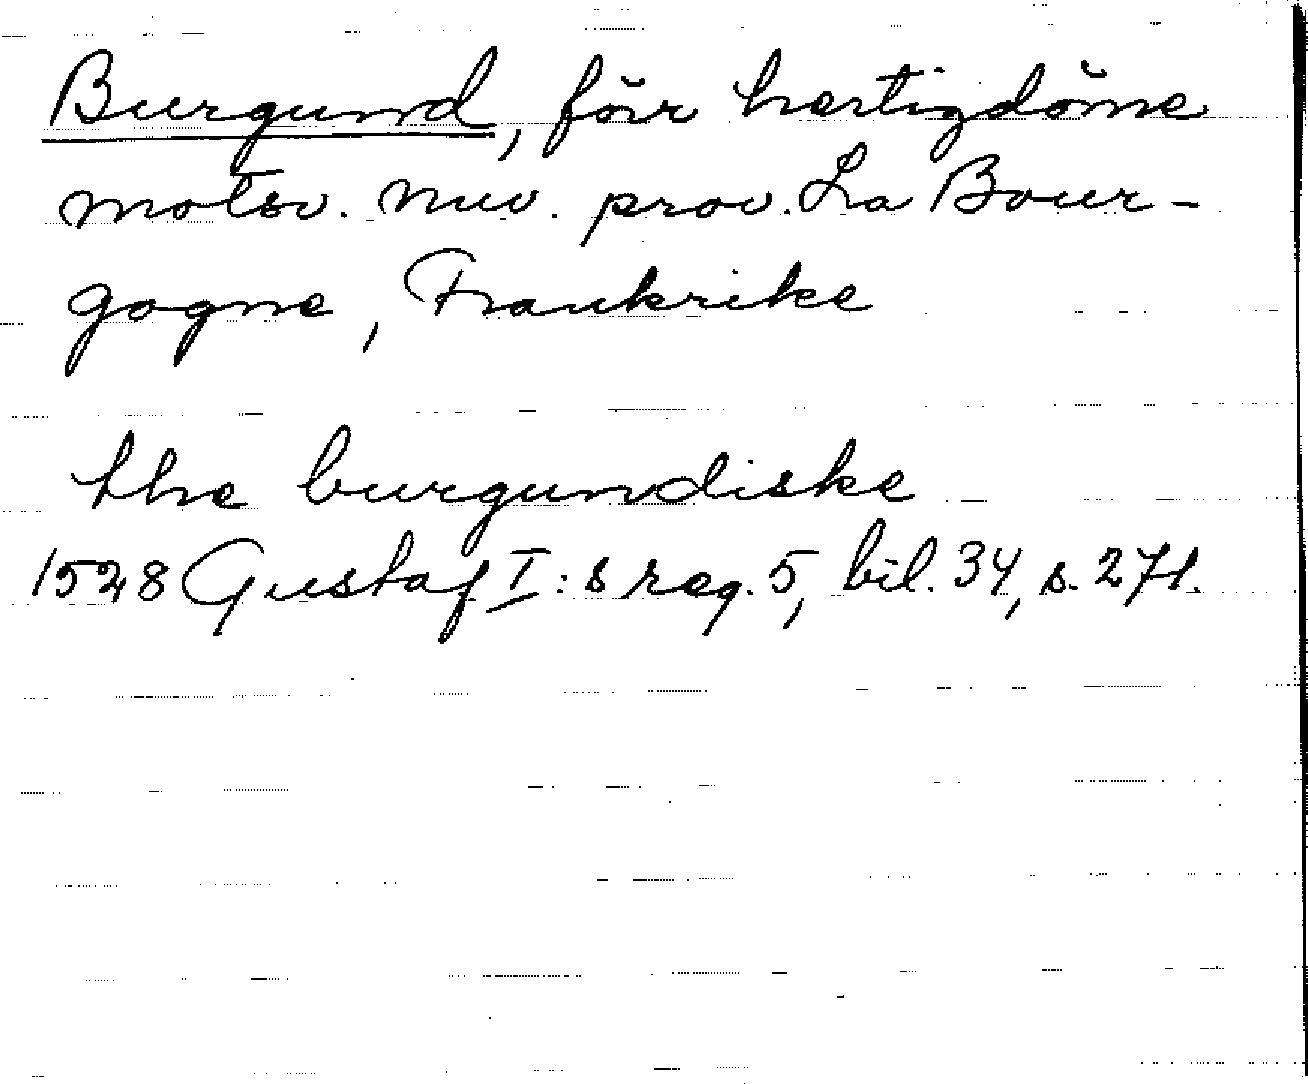 Burgund, förr hertigdöme
motsv. nuv. prov. La Bour-
gogne, Frankrike
the burgundiske
1528 Gustaf I:s reg. 5, bil. 34, s. 271.